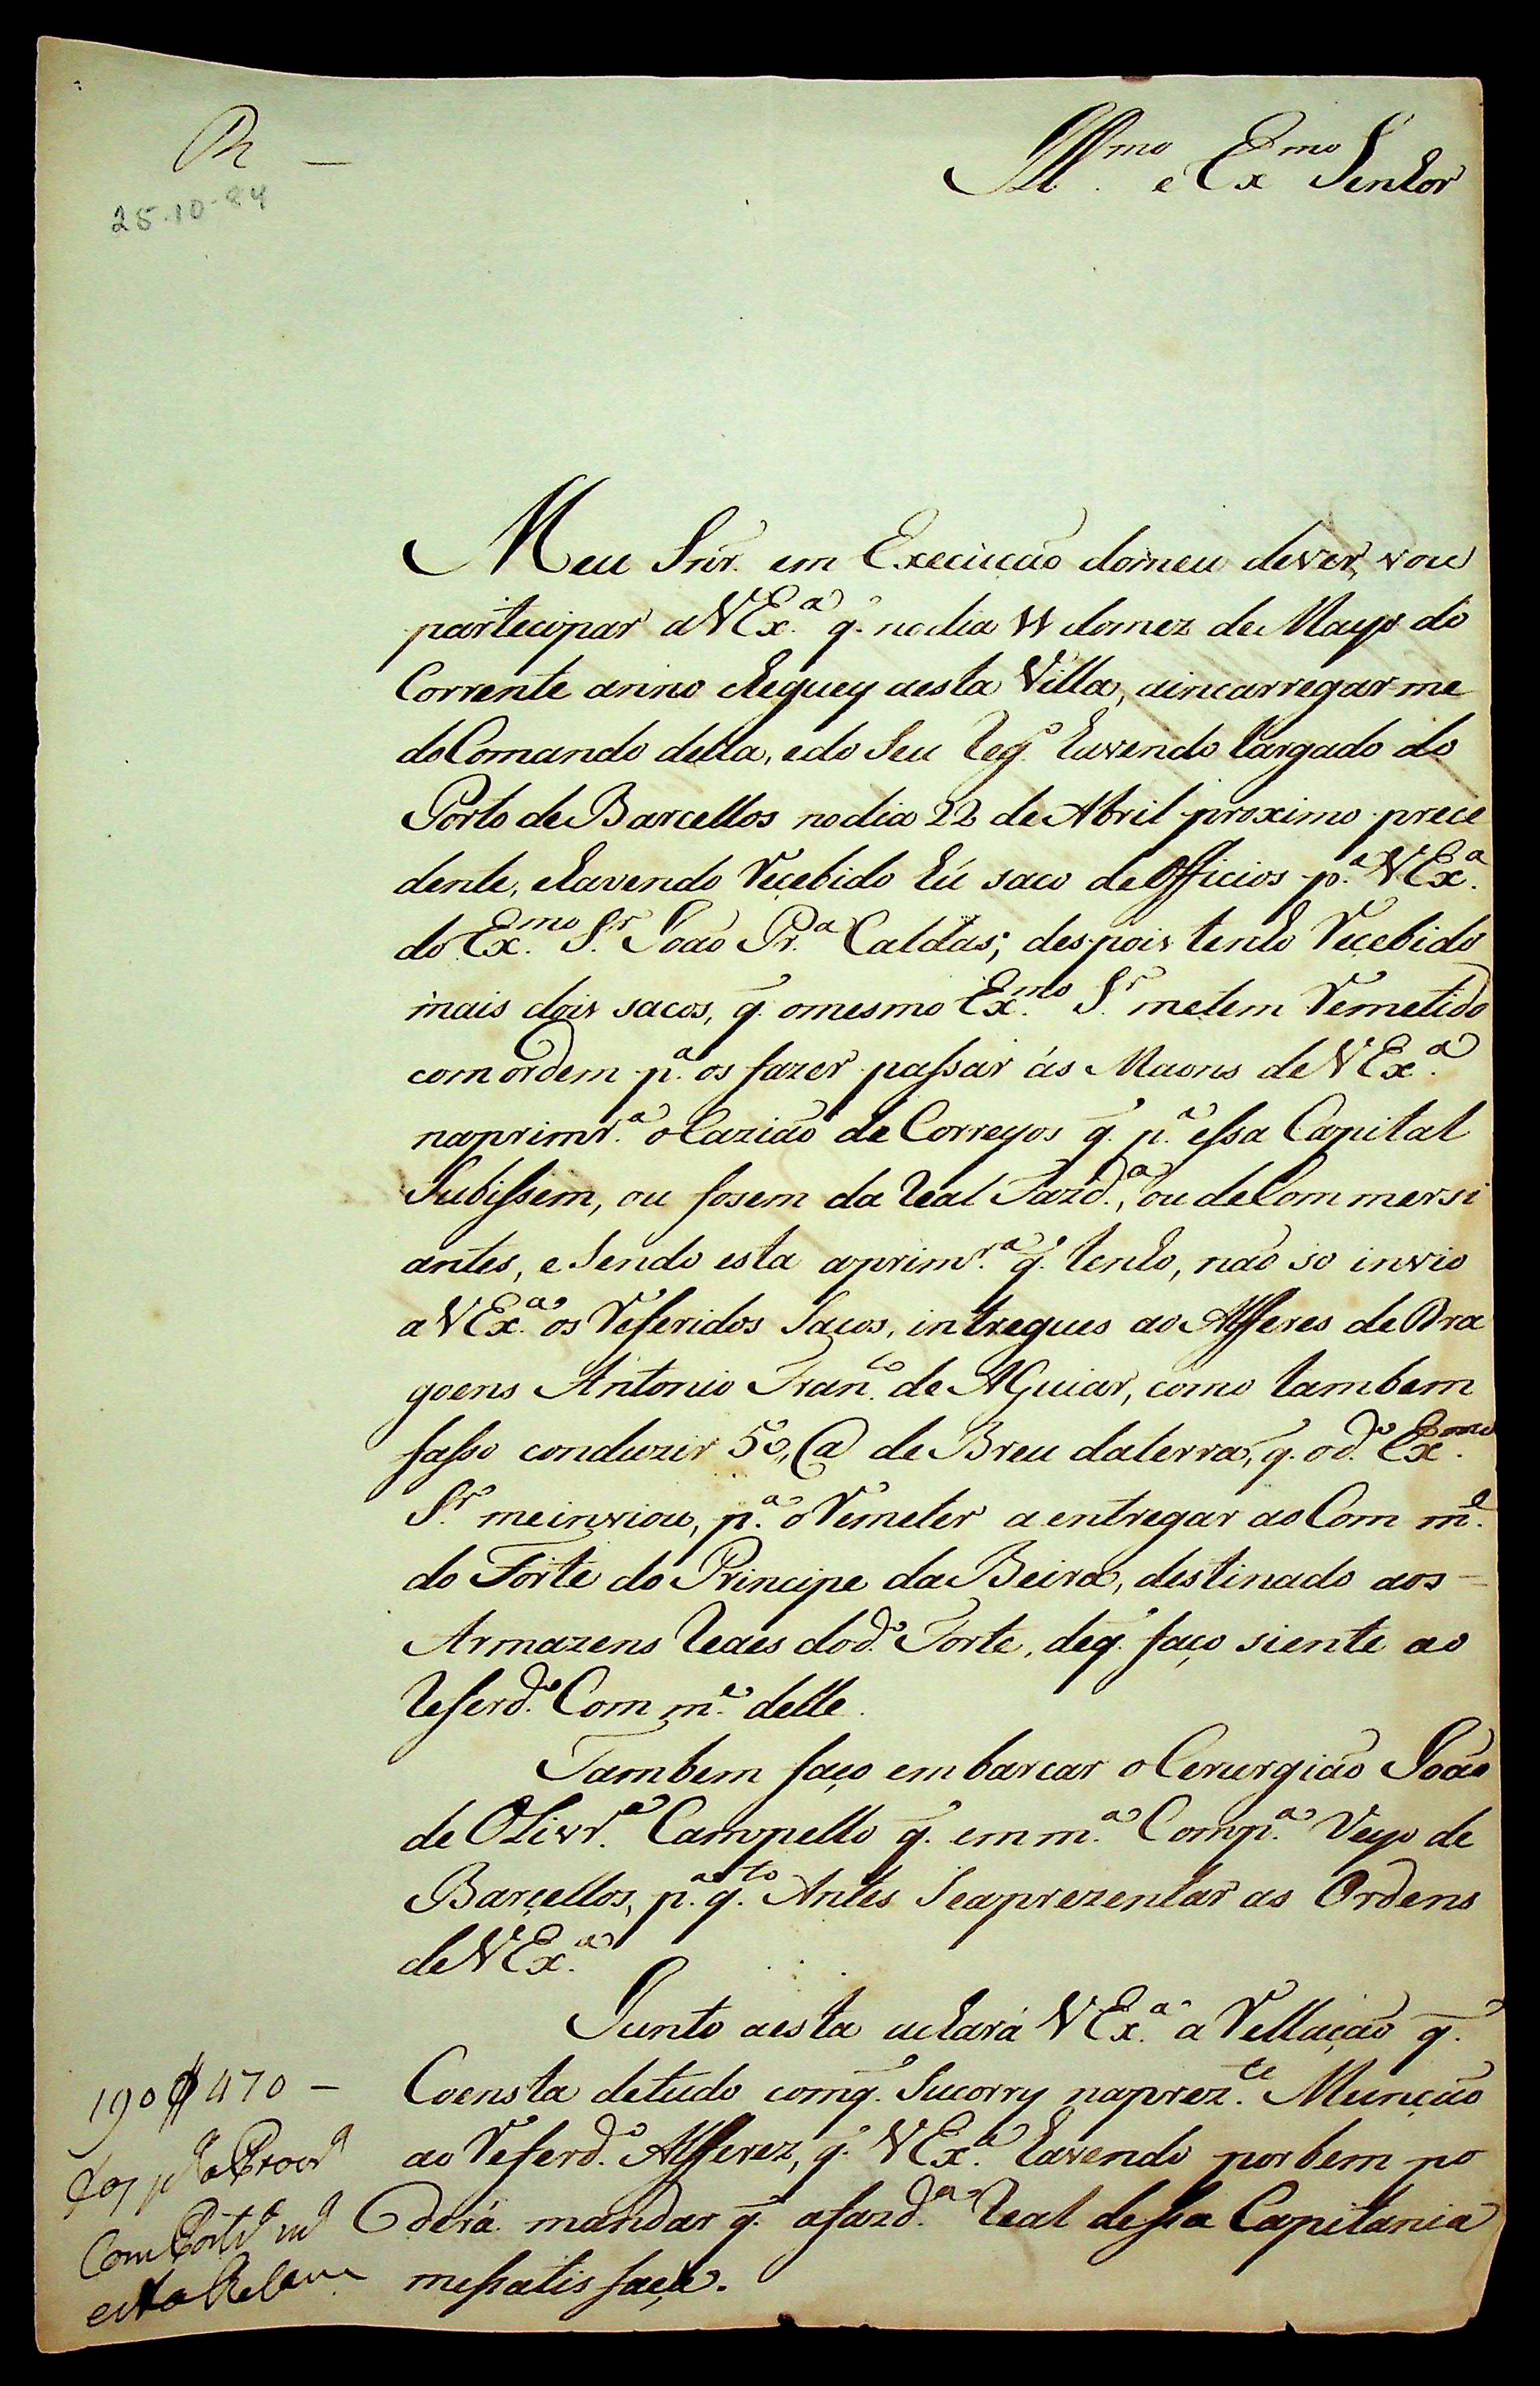 R —
25.10.84
Ill.mo e Ex.mo Senhor
Meu Snr. em Execução domeu dever, vou
partecipar aVEx.a q. nodia 11 domez de Mayo do
Corrente anno cheguey aesta Villa, aincarregar-me
doComando della, edo Seu Reg.o havendo largado do
Porto de Barcellos nodia 22 de Abril proximo prece
dente, ehavendo Reçebido hú saco deOfficios p.a VEx.a
do Ex.mo S.r João Pr.a Caldas; despois tenho Reçebido
mais dois sacos, q. omesmo Ex.mo S.r metem Remetido
com ordem p.a os fazer passar ás Maons deVEx.a
naprimr.a oCazião de Correyos q. p.a essa Capital
Subissem, ou fosem da Real Fazd.a, ou deCommersi
antes, e Sendo esta aprimr.a q. tenho, não so invio
a VEx.a os Referidos Sacos, intregues ao Alferes de Dra
goens Antonio Fran.co de AGuiar, como tambem
fasso conduzir 50,, @ de Breu daterra, q. od.o Ex.mo
S.r meinviou, p.a oRemeter a entregar ao Com m.e
do Forte do Principe da Beira, destinado aos =
Armazens Reaes dod.o Forte, deq. faço siente ao
Referd.o Com m.e delle.
Tambem faço embarcar o Cerurgião João
de OLivr.a Campello q. em m.a Comp.a Veyo de
Barçellos, p.a q.to Antes Seaprezentar as Ordens
deVEx.a
Junto aesta achará VEx.a a Rellação q.
Coensta detudo comq. Sucorry naprez.te Munção
ao Referd.o Alferez, q. VEx.a havendo por bem po
derá mandar q. afazd.a Real dessa Capitania
messatisfaça.
190$470 —
com
esta